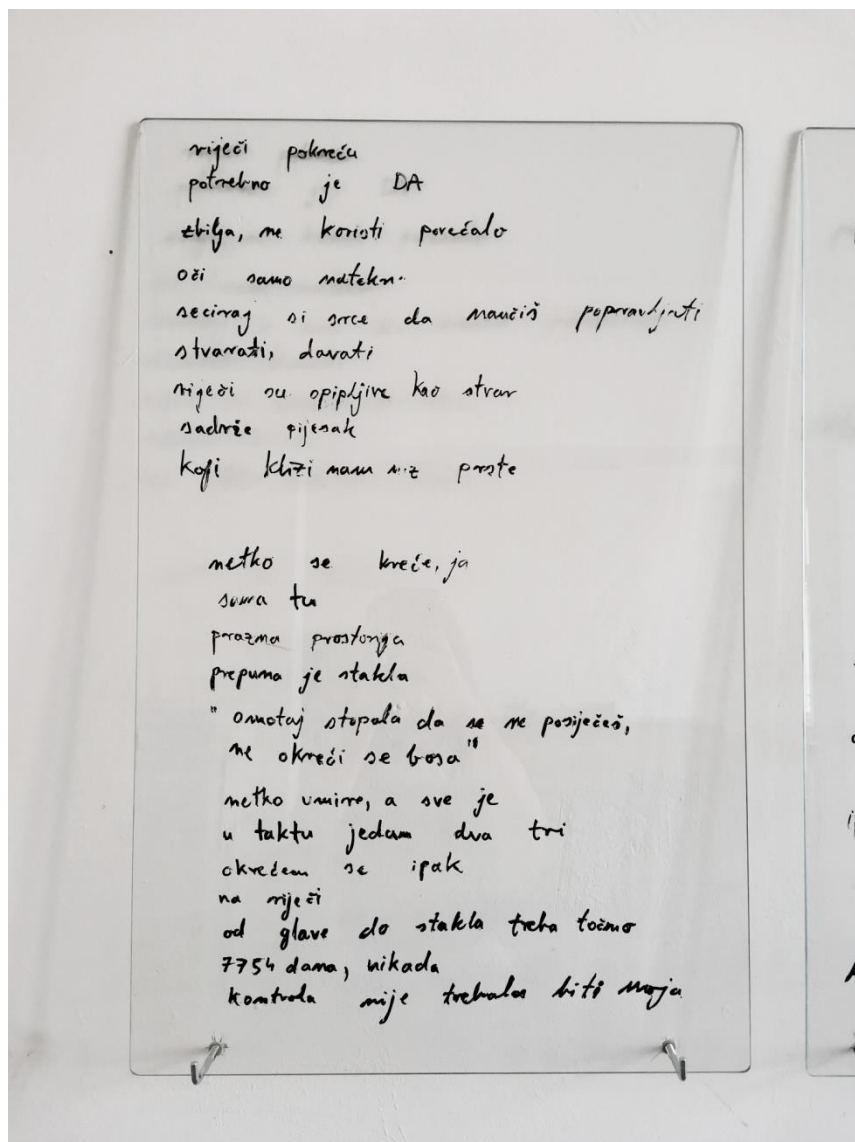 riječi pokreću
potrebno je DA
zbilja, ne koristi povećalo
oči samo nateknu
seciraj si srce da naučiš popravljati
stvarati, davati
riječi su opipljive kao stvar
sadrže pijesak
koji klizi nam niz prste
netko se kreće, ja
sama tu
prazna prostorija
prepuna je stakla
"omotaj stopala da se ne posiječeš,
ne okreći se bosa"
netko umire, a sve je
u taktu jedan dva tri
okrećem se ipak
na riječi
od glave do stakla treba točno
7754 dana, nikada
kontrola nije trebala biti moja